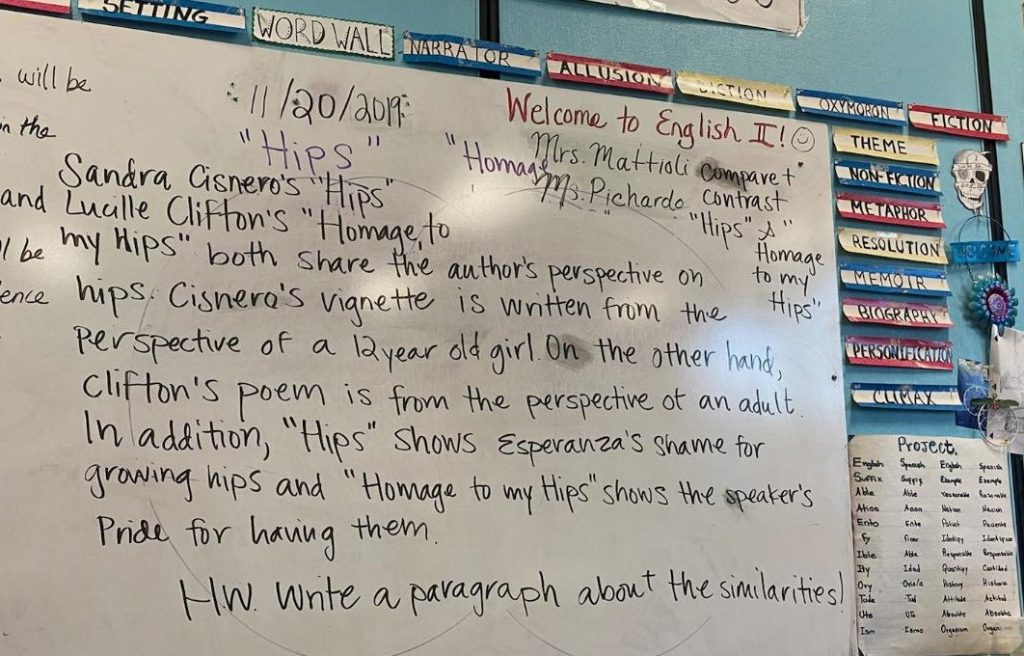 SETTING
WORD WALL
NARRATOR
ALLUSION
DICTION
OXYMORON
FICTION
THEME
NON-FICTION
METAPHOR
RESOLUTION
MEMOIR
BIOGRAPHY
PERSONIFICATION
CLIMAX
WELCOME
will be
in the
and
be
11/20/2019
Welcome to English II!
"Hips"
"Homage
Mrs. Mattioli
Ms. Pichardo
Compare +
contrast
"Hips" &"
Homage
to my
Hips"
Sandra Cisnero's "Hips"
and Lucille Clifton's "Homage, to
my Hips" both share the author's perspective on
hips. Cisnero's vignette is written from the
perspective of a 12 year old girl. On the other hand,
Clifton's poem is from the perspective of an adult.
In addition, "Hips" shows Esperanza's shame for
growing hips and "Homage to my Hips" shows the speaker's
Pride for having them.
H.W. Write a paragraph about the similarities!
Project.
English Spanish English Spanish
Suffix Example Example
Able Able
Ento Ente
Fy Identify
Ible Able Responsible Responsable
Ity Idad
Ory Orio/a History Historia
Tude Tud Attitude Actitud
Ism Ismo Organism